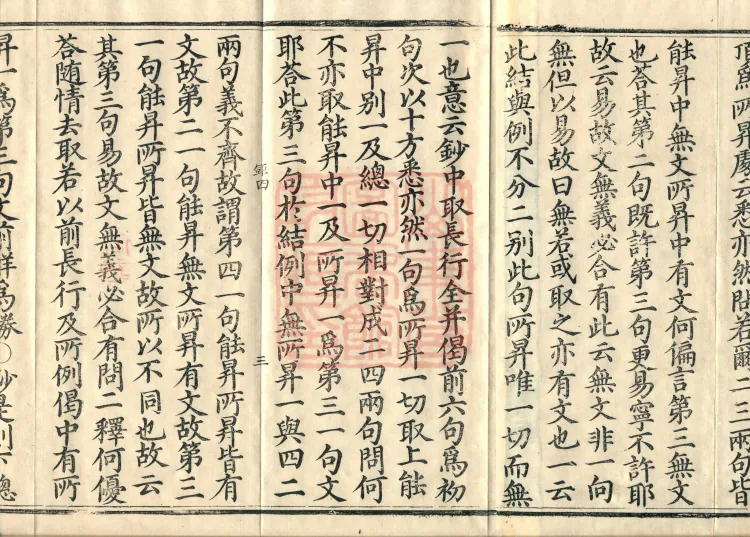 頂為所昇處云悉亦然問若爾二三兩句皆
能昇中無文所昇中有文何偏言第三無文
也荅其第二句既許第三句更易寧不許耶
故云易故文無義必合有此云無文非一向
無但以易故曰無若或取之亦有文也一云
此結與例不分二別此句所昇唯一切而無
一也意云鈔中取長行全并偈前六句為初
句次以十方悉亦然一句為所昇一切取上能
昇中別一及總一切相對成二四兩句問何
不亦取能昇中一及所昇一為第三一句文
耶荅此第三句於結例中無所昇一與四二
鉅四
三
兩句義不齊故謂第四一句能昇所昇皆有
文故第二一句能昇無文所昇有文故第三
一句能昇所昇皆無文故所以不同也故云
其第三句易故文無義必合有問二釋何優
荅随情去取若以前長行及所例偈中有所
昇一為第三句文前釋為勝〇鈔是則下總